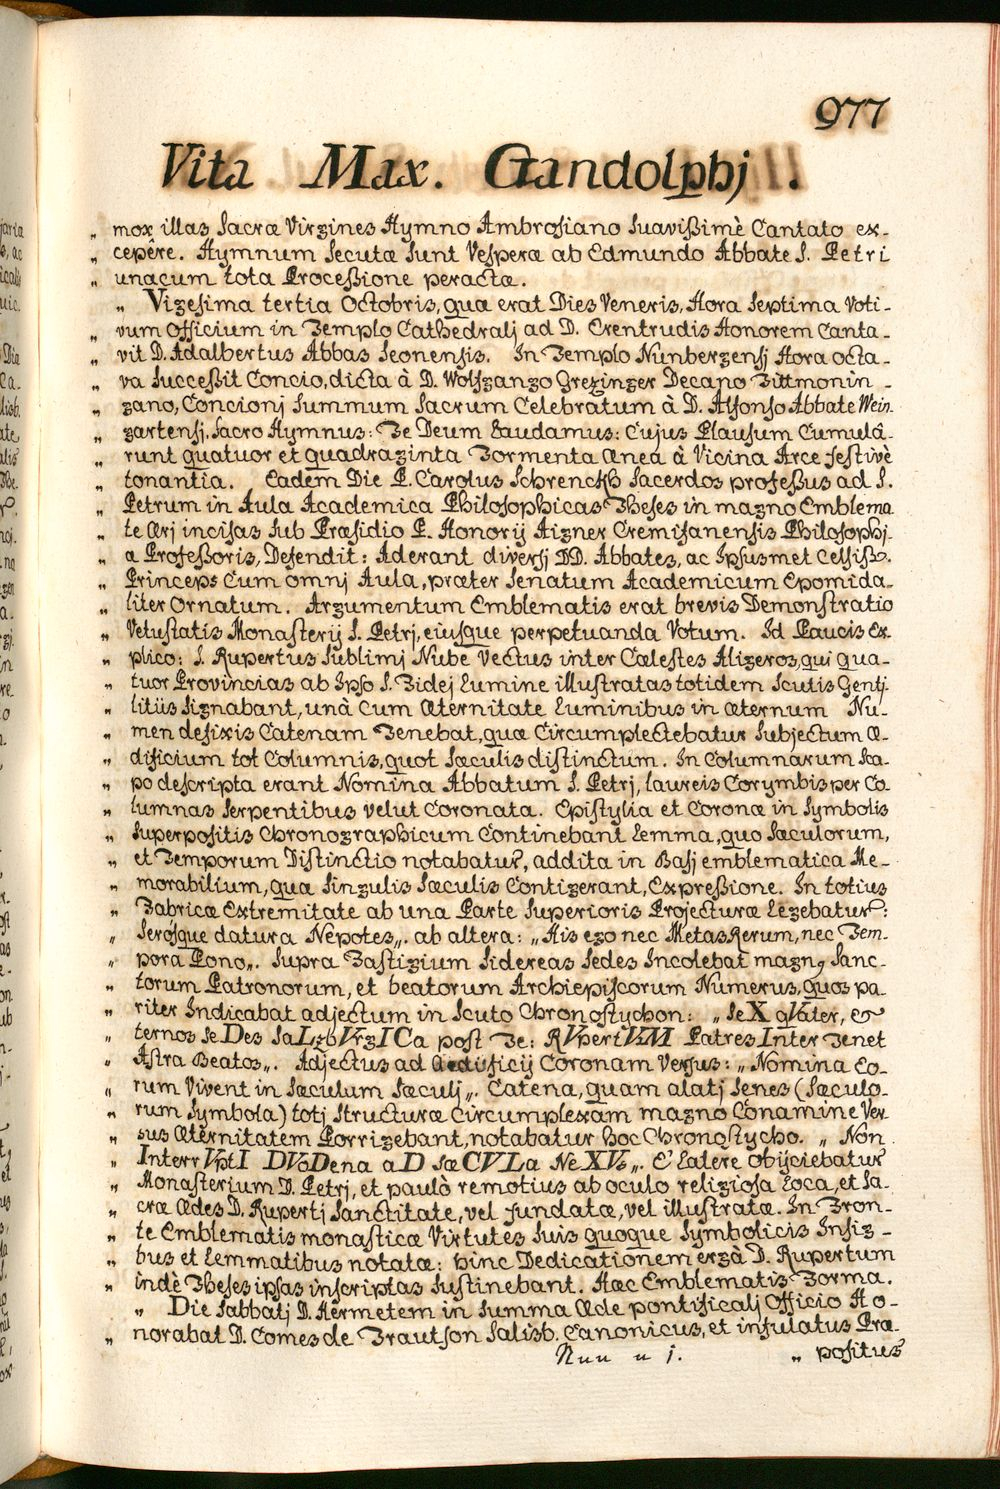 977
Vita Max. Gandolphj.
„ mox illas Sacræ Virgines Hymno Ambrosiano Suavißimè Cantato ex-
„ cepêre. Hymnum Secutæ Sunt Vesperæ ab Edmundo Abbate S. Petri
„ unacum tota Proceßione peractæ.
„ Vigesima tertia Octobris, quæ erat Dies Veneris, Hora Septima Voti-
„ vum Officium in Templo Cathedralj ad D. Erentrudis Honorem Canta-
„ vit D. Adalbertus Abbas Seonensis. In Templo Nunbergensj Hora octa-
„ va Succeßit Concio, dicta à D. Wolfgango Grezinger Decano Tittmonin-
„ gano, Concionj Summum Sacrum Celebratum à D. Alfonso Abbate Wein-
„ gartensj. Sacro Hymnus: Te Deum Laudamus: Cujus Plausum Cumulâ-
„ runt quatuor et quadraginta Tormenta ænea à Vicina Arce festivè
„ tonantia. Eadem Die P. Carolus Schrenckh Sacerdos profeßus ad S.
„ Petrum in Aula Academica Philosophicas Theses in magno Emblema
„ te Ærj incisas Sub Præsidio P. Honorij Aigner Cremisanensis Philosophj-
„ æ Profeßoris, Defendit: Aderant diversj DD. Abbates, ac Ipsusmet Celsiß.
„ Princeps Cum omnj Aula, præter Senatum Academicum Epomida-
„ liter Ornatum. Argumentum Emblematis erat brevis Demonstratio
„ Vetustatis Monasterij S. Petrj, eiusque perpetuanda Votum. Id Paucis Ex-
„ plico: S. Rupertus Sublimj Nube Vectus inter Cælestes Aligeros, qui qua-
„ tuor Provincias ab Ipso S. Fidej Lumine illustratas totidem Scutis Gentj-
„ litiis Signabant, unà cum Æternitate Luminibus in æternum Nu-
„ men defixis Catenam Tenebat, quæ Circumplectebatur Subjectum Æ-
„ dificium tot Columnis, quot Sæculis distinctum. In Columnarum Sca-
„ po descripta erant Nomina Abbatum S. Petrj, laureis Corymbis per Co-
„ lumnas Serpentibus velut Coronata. Epistylia et Coronæ in Symbolis
„ Superpositis Chronographicum Continebant Lemma, quo Sæculorum,
„ et Temporum Distinctio notabatur, addita in Basj emblematica Me-
„ morabilium, quæ Singulis Sæculis Contigerant, Expreßione. In totius
„ Fabricæ Extremitate ab una Parte Superioris Projecturæ Legebatur:
„ Serósque datura Nepotes„. ab altera: „His ego nec Metas Rerum, nec Tem-
„ pora Pono„. Supra Fastigium Sidereas Sedes Incolebat magnꝯ Sanc-
„ torum Patronorum, et beatorum Archiepiscorum Numerus, quos pa-
„ riter Indicabat adjectum in Scuto Chronostychon: „SeX qVater, &
„ ternos SeDes SaLzbVrgICa post Te: RVpertVM Patres Inter Tenet
„ Astra Beatos„. Adjectus ad Ædificij Coronam Versus: „Nomina Eo-
„ rum Vivent in Sæculum Sæculj„. Catena, quam alatj Senes (Sæculo-
„ rum Symbola) totj Structuræ Circumplexam magno Conamine Ver
„ sus Æternitatem Porrigebant, notabatur hoc Chronostycho. „Non
„ InterrVptI DVoDena aD SæCVLa NeXVs„. E' Latere Obijciebatur
„ Monasterium D. Petrj, et paulò remotius ab oculo religiosa Loca, et Sa-
„ cræ Ædes D. Rupertj Sanctitate, vel fundatæ, vel illustratæ. In Fron-
„ te Emblematis monasticæ Virtutes Suis quoque Symbolicis Insig-
„ bus et Lemmatibus notatæ: hinc Dedicationem ergà D. Rupertum
„ indè Theses ipsas inscriptas Sustinebant. Hæc Emblematis Forma.
„ Die Sabbatj D. Hermetem in Summa Æde pontificalj Officio Ho-
„ norabat D. Comes de Trautson Salisb. Canonicus, et infulatus Præ-
Nnn n i.
„ positus